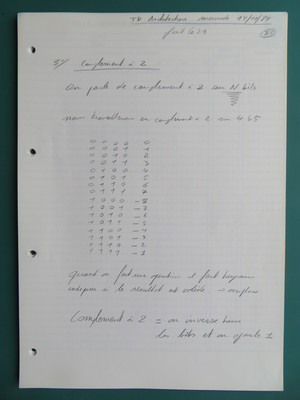 TD Architecture
fait le
5°/ Complement à 2
On parle de complement à 2 sur N bits
nous travaillerons en complement à 2 sur 4 bits
0 0 0 0 0
0 0 0 1 1
0 0 1 0 2
0 0 1 1 3
0 1 0 0 4
0 1 0 1 5
0 1 1 0 6
0 1 1 1 7
1 0 0 0 -8
1 0 0 1 -7
1 0 1 0 -6
1 0 1 1 -5
1 1 0 0 -4
1 1 0 1 -3
1 1 1 0 -2
1 1 1 1 -1
Quand on fait une operation il faut toujours
indiquer si le resultat est valide → overflow
Complement à 2 = on inverse tous
les bits et on ajoute 1